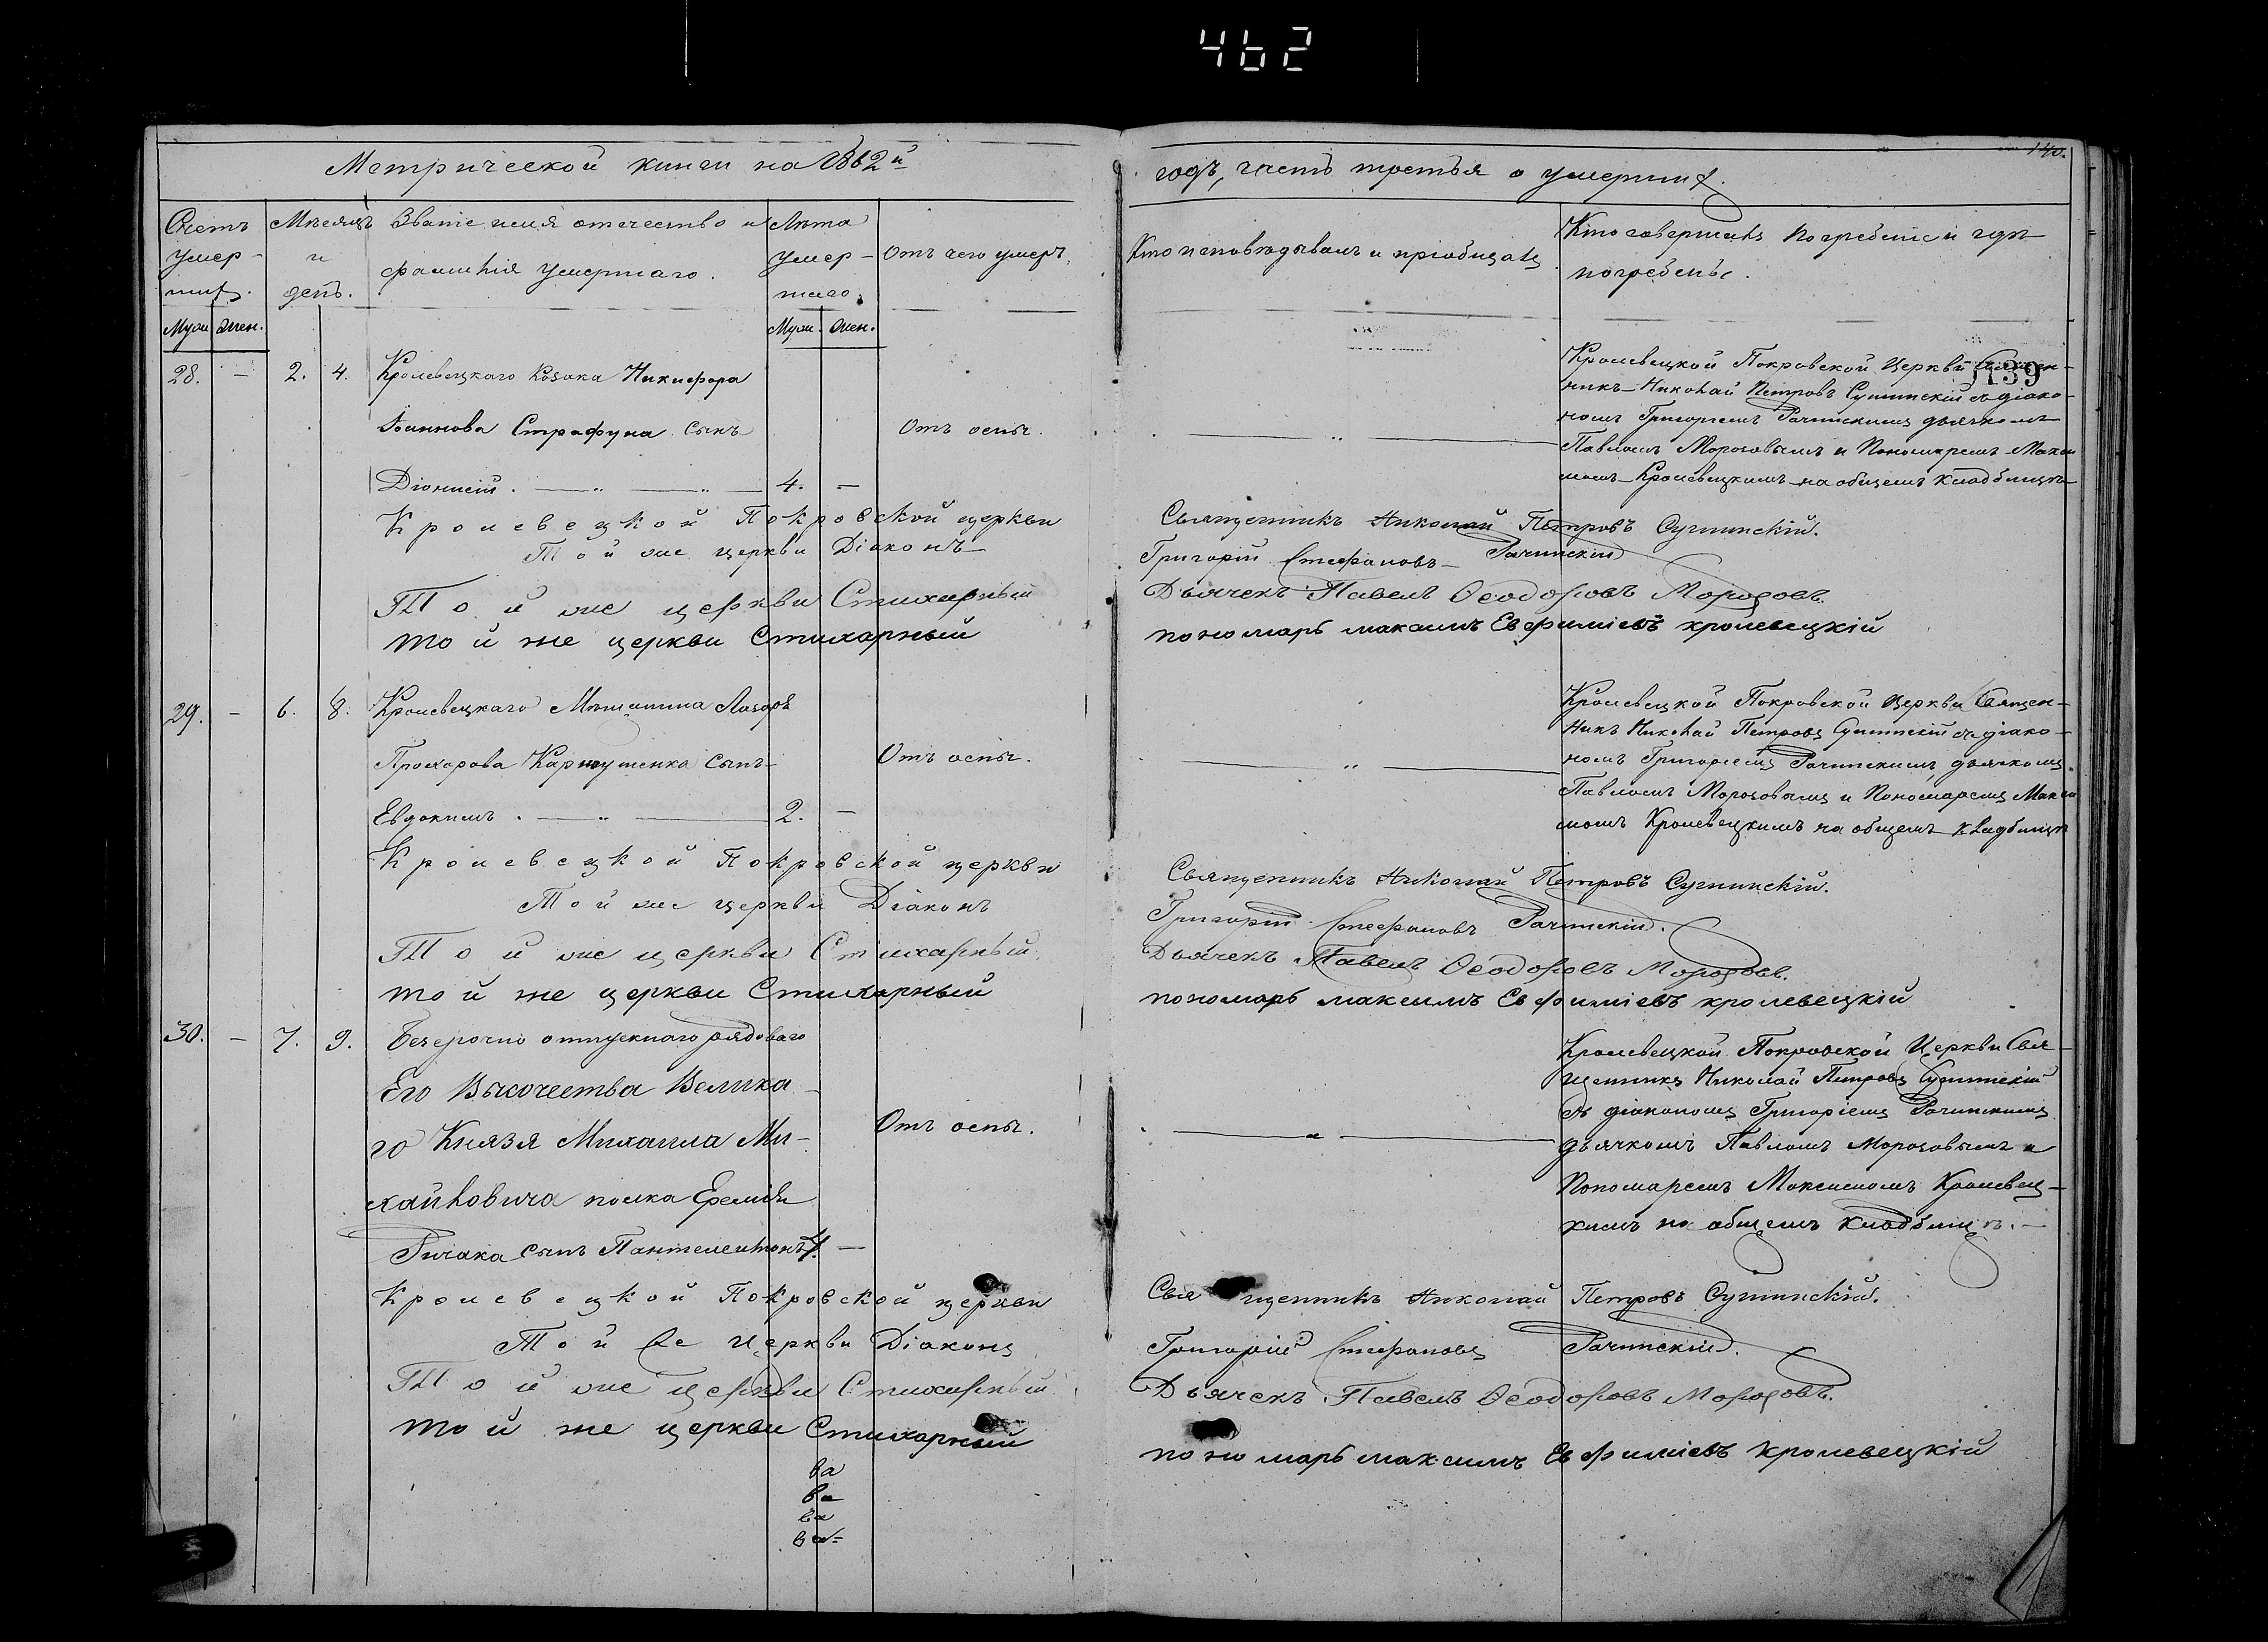 462
140.
Метрической книги на 1862й
годъ, часть третья о умершихъ.
Счетъ умер-
шихъ.
Муж. Жен.
Мѣсяцъ
и
день.
Званіе имя отечество и
фамилія умершаго.
Лѣта
умер-
шаго.
Муж. Жен.
Отъ чего умеръ.
Кто исповѣдывалъ и пріобщалъ
Кто совершалъ погребеніе и гдѣ
погребены.
139
28. — 2. 4. Кролевецкаго козака Никифора
Іоаннова Страфуна сынъ
Отъ оспы.
Діонисій . — „ — „ — 4. —
Кролевецкой Покровской Церкви Священ-
никъ Николай Петровъ Сушинскій съ діако-
номъ Григоріемъ Рачинскимъ дьячкомъ
Павломъ Морозовымъ и Пономаремъ Макси
момъ Кролевецкимъ на общемъ кладбищѣ
Кролевецкой Покровской церкви Священникъ Николай Петровъ Сушинскій.
Той же церкви Діаконъ Григорій Стефановъ Рачинскій
Той же церкви Стихарный Дьячекъ Павелъ Ѳеодоровъ Морозовъ.
той же церкви Стихарный пономарь максимъ Евфиміевъ кролевецкій
29. — 6. 8. Кролевецкаго Мѣщанина Лазаря
Прохорова сынъ
Отъ оспы.
Евдокимъ . — „ — 2. —
Кролевецкой Покровской Церкви Священ-
никъ Николай Петровъ Сушинскій съ діако-
номъ Григоріемъ Рачинскимъ, дьячкомъ
Павломъ Морозовымъ и Пономаремъ Макси
момъ Кролевецкимъ на общемъ кладбищѣ
Кролевецкой Покровской церкви Священникъ Николай Петровъ Сушинскій.
Той же церкви Діаконъ Григорій Стефановъ Рачинскій.
Той же церкви Стихарный Дьячекъ Павелъ Ѳеодоровъ Морозовъ.
той же церкви Стихарный пономарь максимъ Евфиміевъ кролевецкій
30. — 7. 9. Безсрочно отпускнаго рядоваго
Его Высочества Велика-
го Князя Михаила Ми-
хайловича полка Ереміи
Ричака сынъ Пантелеимонъ 7. —
Отъ оспы.
Кролевецкой Покровской Церкви Свя-
щенникъ Николай Петровъ Сушинскій
съ діакономъ Григоріемъ Рачинскимъ
дьячкомъ Павломъ Морозовымъ и
Пономаремъ Максимомъ Кролевец-
кимъ на общемъ кладбищѣ. —
Кролевецкой Покровской церкви Священникъ Николай Петровъ Сушинскій.
Той же Церкви Діаконъ Григорій Стефановъ Рачинскій.
Той же церкви Стихарный Дьячекъ Павелъ Ѳеодоровъ Морозовъ.
той же церкви Стихарный пономарь максимъ Евфиміевъ кролевецкій
ва
ва
ва
ва-